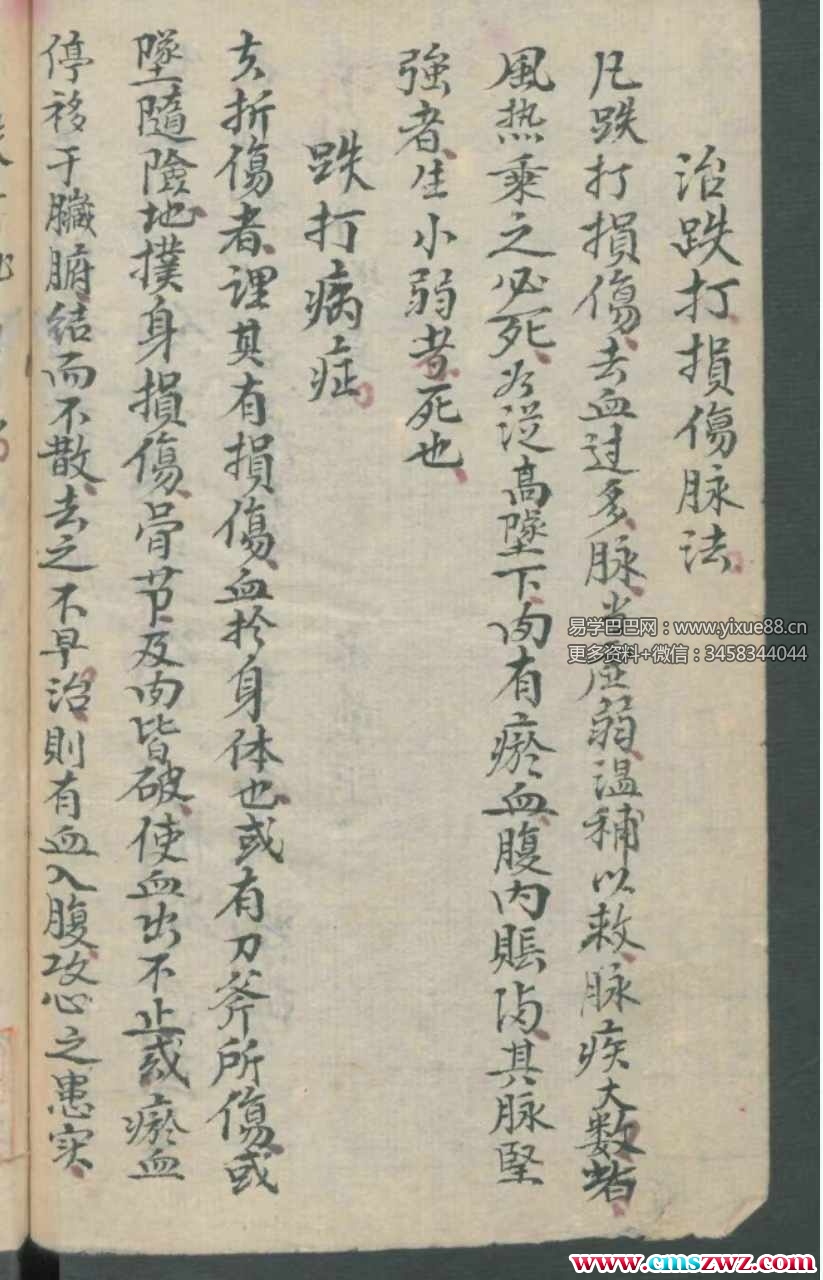 治跌打損傷脉法
凡跌打損傷去血过多脉虛弱温補以救脉疾大数者
風热乘之必死从高墜下内有瘀血腹内賬满其脉堅
強者生小弱者死也
跌打病症
夫折傷者谓其有損傷血於身体也或有刀斧所傷或
墜隨險地撲身損傷骨节及内皆破使血出不止或瘀血
停移于臟腑結而不散去之不早治則有血入腹攻心之患实
易学巴巴网：www.yixue88.cn
更多资料+微信：3458344044
www.cmszwz.com